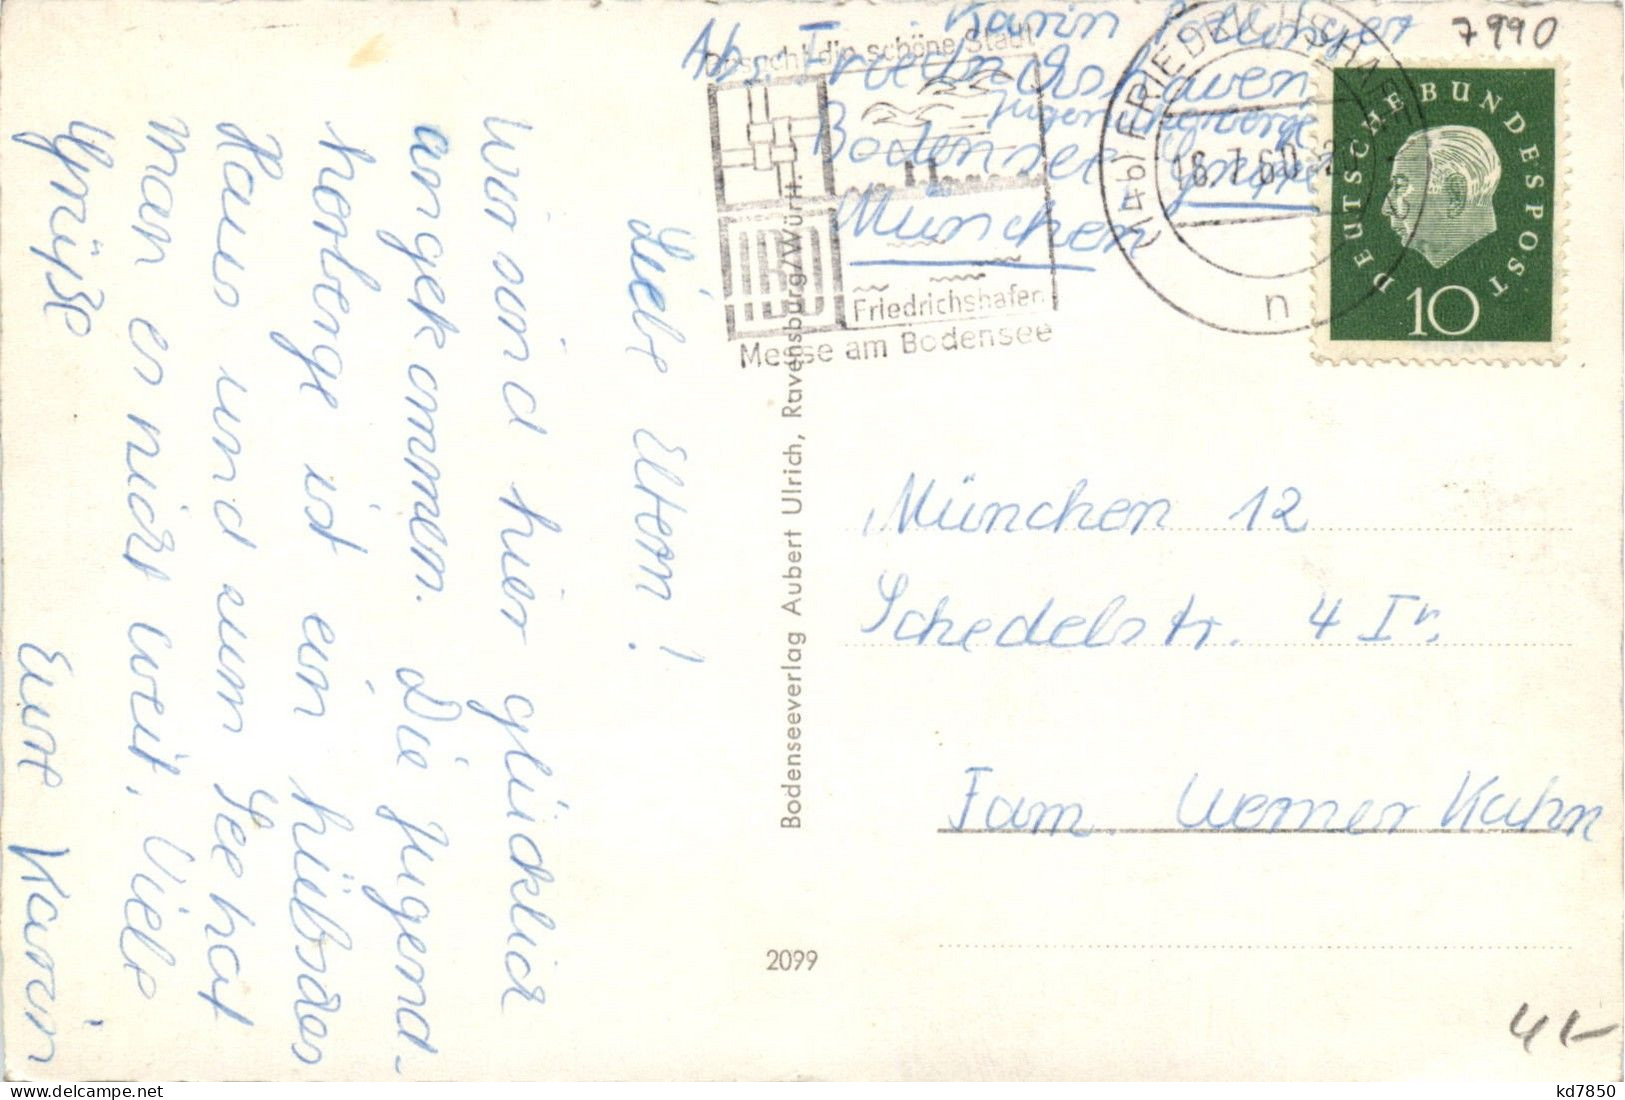 Karin
7990
Ab.: Friedrichshaven
Jugendherberge
Bodensee
München
Besucht die schöne Stadt
IBO
Friedrichshafen
Messe am Bodensee
(14b) FRIEDRICHSHAFEN
18.7.60
n
DEUTSCHE BUNDESPOST
10
Liebe Eltern!
Wir sind hier glücklich
angekommen. Die Jugend-
herberge ist ein hübsches
Haus und zum See hat
man es nicht weit. Viele
Grüße
Eure Karin
Bodenseeverlag Aubert Ulrich, Ravensburg/Württ.
2099
München 12
Schedelstr. 4 Ir.
Fam. Werner Kuhn
4,-
kd7850